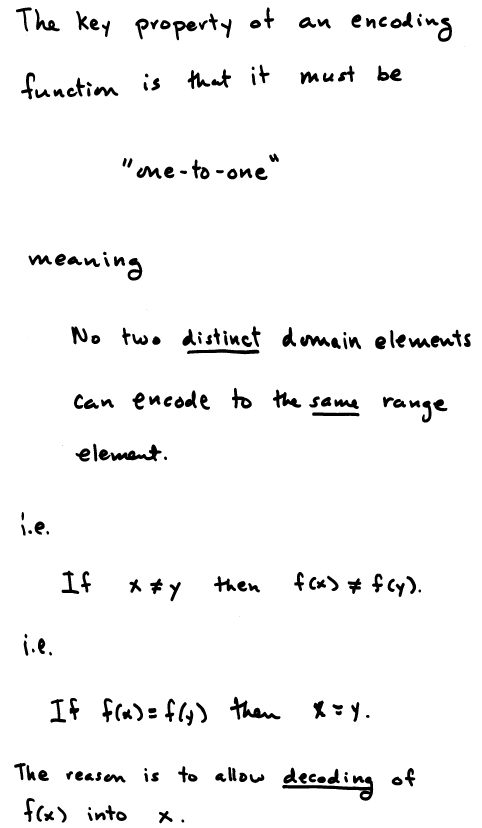 The key property of an encoding
function is that it must be
"one-to-one"
meaning
No two distinct domain elements
can encode to the same range
element.
i.e.
If x ≠ y then f(x) ≠ f(y).
i.e.
If f(x) = f(y) then x = y.
The reason is to allow decoding of
f(x) into x.